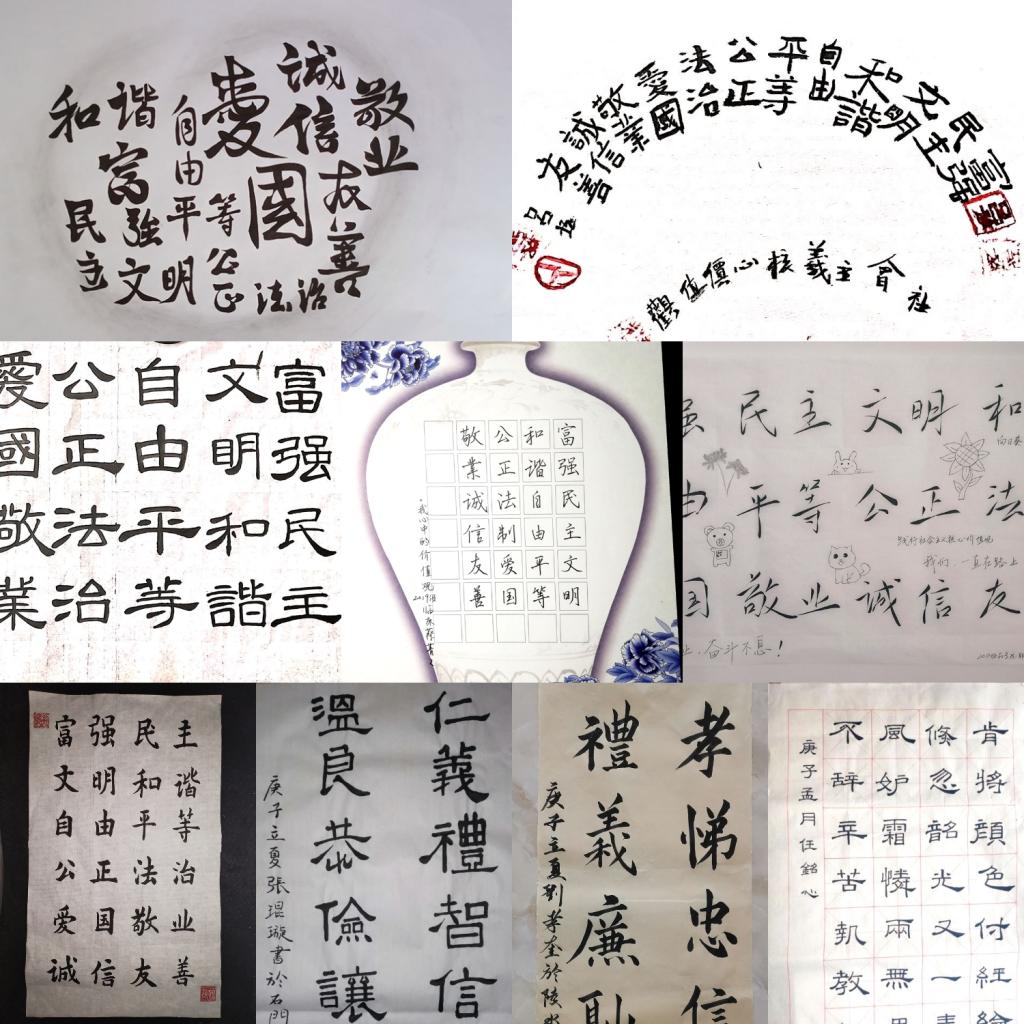 愛國
誠信
敬业
友善
和谐
自由
富强
平等
民主
文明
公正
法治
富强
民主
文明
和諧
自由
平等
公正
法治
愛國
敬業
誠信
友善
社會主義核心價值觀
富强民主
文明和諧
自由平等
公正法治
愛國敬業
富强民主文明
和谐自由平等
公正法制爱国
敬業诚信友善
民主文明和
向日葵
由平等公正法
践行社会主义核心价值观
我们一直在路上
国敬业诚信友
奋斗不息!
富强民主
文明和谐
自由平等
公正法治
爱国敬业
诚信友善
仁義禮智信
溫良恭儉讓
庚子立夏張琨璇書於石門
孝悌忠信
禮義廉恥
庚子立夏
肯將顏色付經
倏忽韶光又一
風妒霜憐兩無
不辞辛苦執教
庚子孟月任銘心